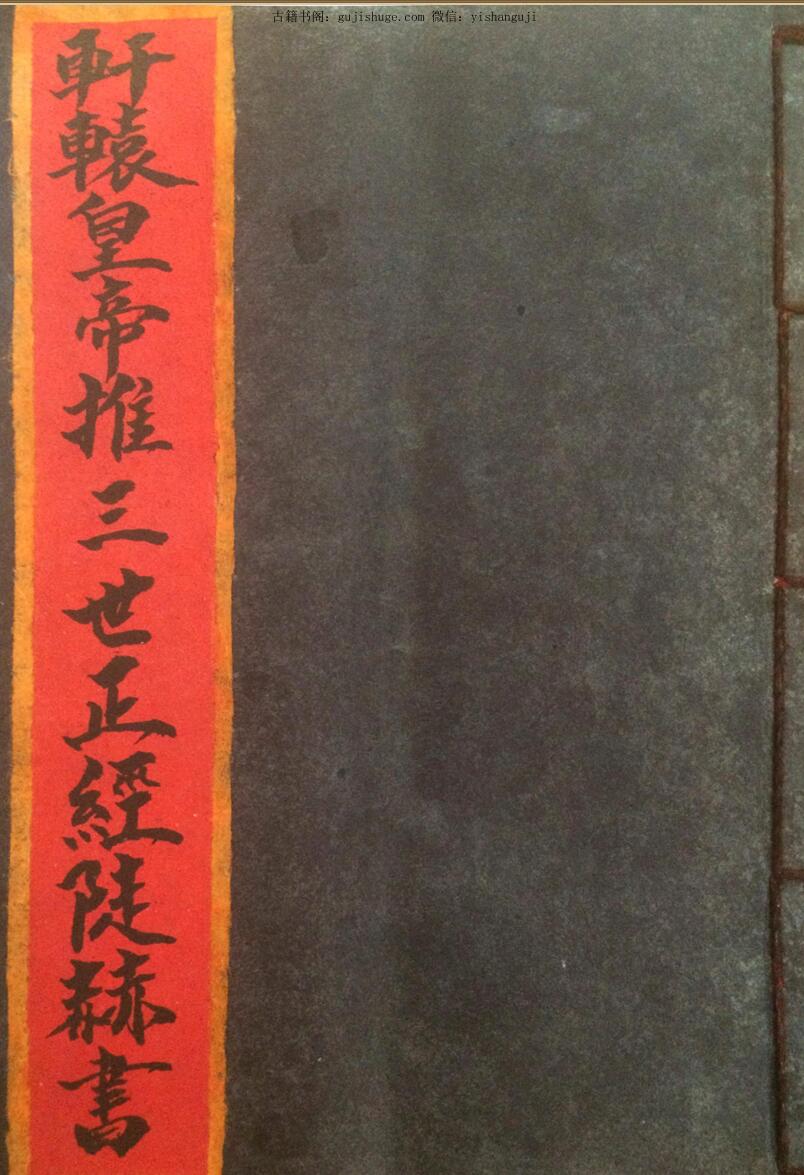 古籍书阁：gujishuge.com 微信：yishanguji
軒轅皇帝推三世正經陡赫書